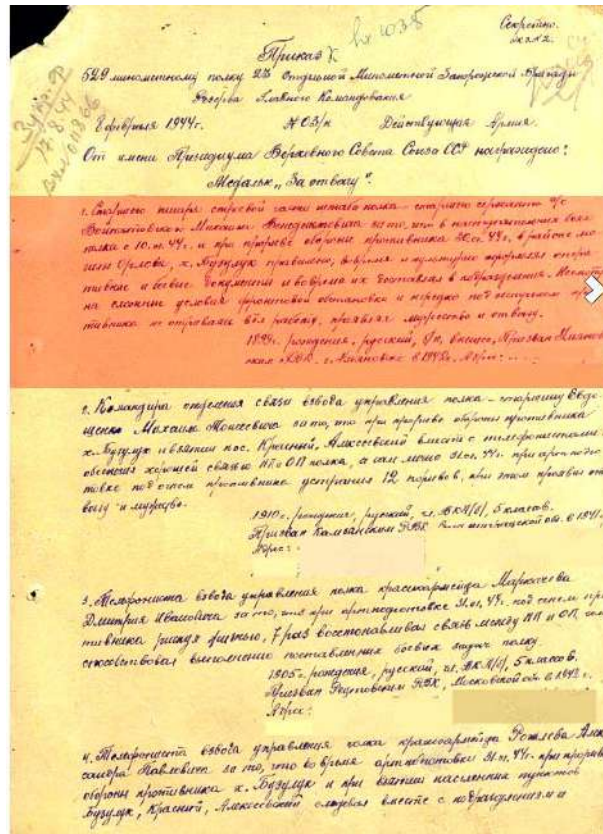 Секретно.
экз №2.
Приказ
529 минометному полку 23 Отдельной Минометной Запорожской Бригады
Резерва Главного Командования
8 февраля 1944г. №03/н Действующая Армия.
От имени Президиума Верховного Совета Союза ССР награждаю:
Медалью „За отвагу".
1. Старшего писаря строевой части штаба полка - старшего сержанта
Михаила Венедиктовича за то, что в наступательных боях
полка с 10.01.44г. и при прорыве обороны противника 31.01.44г. в районе
Орлова, х. Бузулук правильно, вовремя и культурно оформлял опера
тивные и боевые документы и вовремя их доставлял в подразделения. Несмотря
на сложные условия фронтовой обстановки и нередко под огнем про
тивника не отрываясь вел работу, проявляя мужество и отвагу.
1899г. рождения, русский, Призван
РВК. г. в 1942г.
2. Командира отделения связи взвода управления полка - старшину Евдо
щенко Михаила Моисеевича за то, что при прорыве обороны противника
х. Бузулук и взятии пос. Красный, Алексеевский вместе с телефонистами
обеспечил хорошей связью НП и ОП полка, а сам лично 31.01.44г. при артподго
товке под огнем противника устранил 12 порывов, при этом проявил от
вагу и мужество.
1910г. рождения, русский, чл. ВКП/б/, 5 классов.
Призван РВК обл. в 1941г.
Адрес:
3. Телефониста взвода управления полка красноармейца Маркачева
Дмитрия Ивановича за то, что при артподготовке 31.01.44г. под огнем про
тивника рискуя жизнью, 7 раз восстанавливал связь между НП и ОП, чем
способствовал выполнению поставленных боевых задач полку.
1905г. рождения, русский, чл. ВКП/б/, 5 классов.
Призван РВК, Московской обл. в 1942г.
Адрес:
4. Телефониста взвода управления полка красноармейца Алек
сандра Павловича за то, что во время артподготовки 31.01.44г. при прорыве
обороны противника х. Бузулук и при взятии населенных пунктов
Бузулук, Красный, Алексеевский следовал вместе с подразделениями